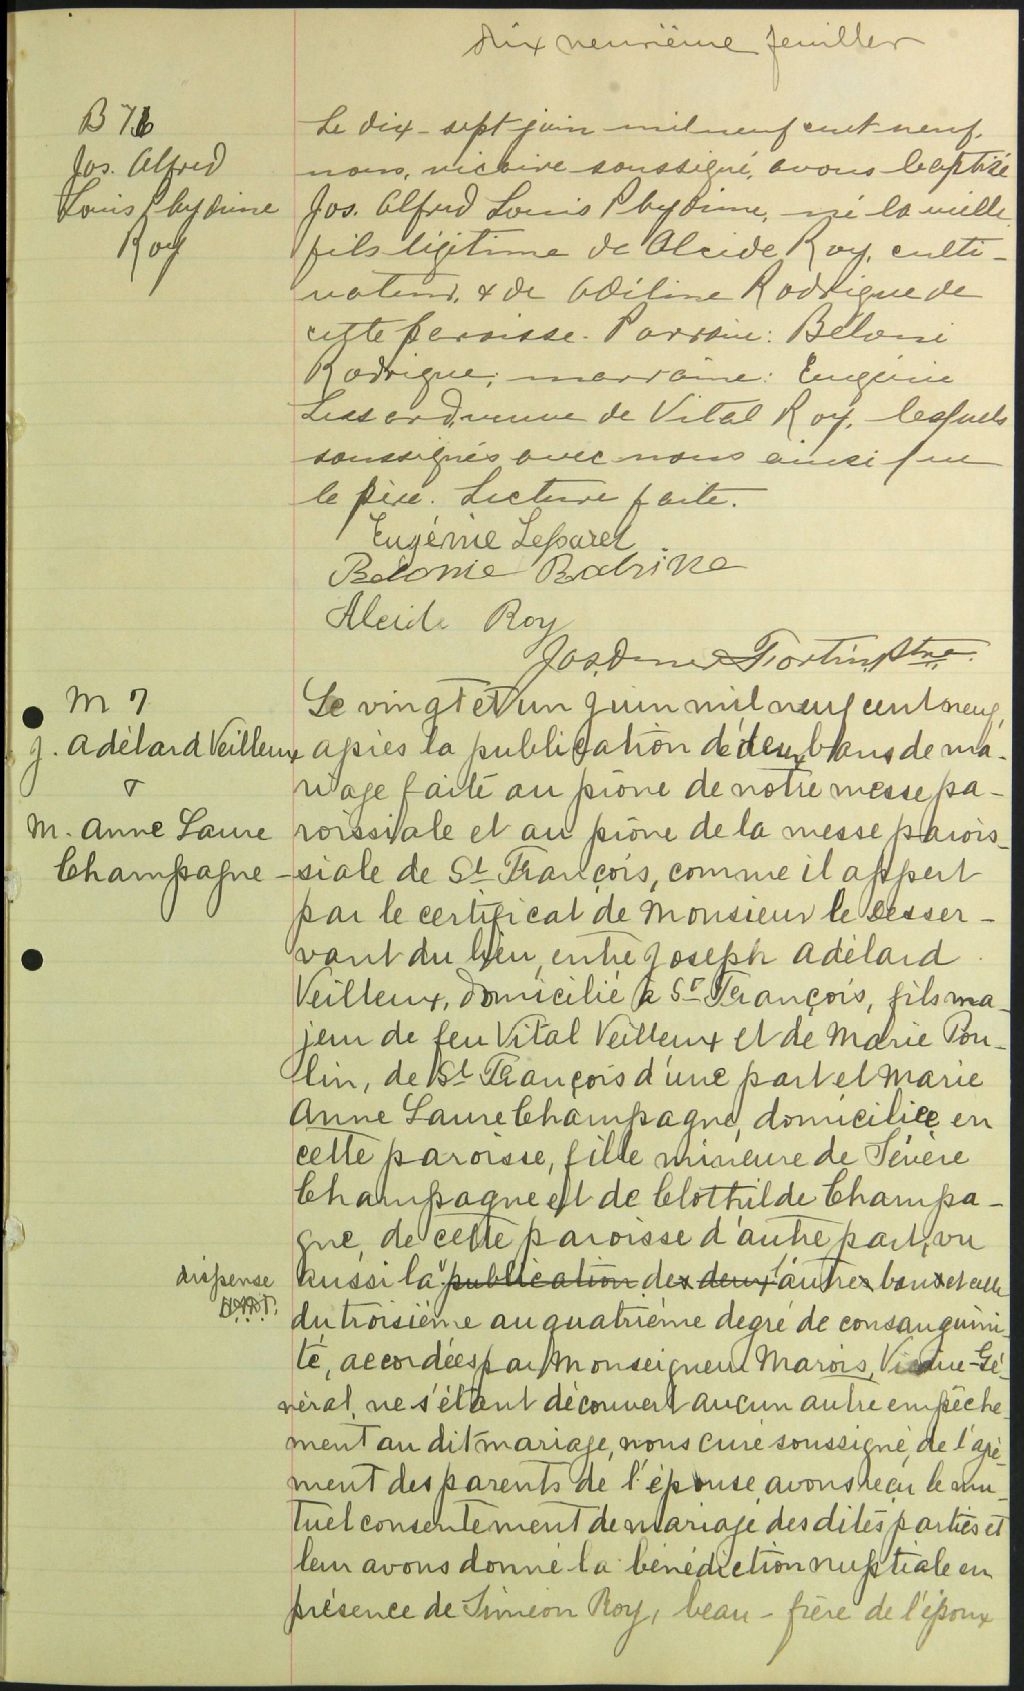 dix neuvième feuillet
B 76
Jos. Alfred
Louis Phydime
Roy
Le dix-sept juin mil neuf cent neuf,
nous, vicaire soussigné, avons baptisé
Jos. Alfred Louis Phydime, né la veille
fils légitime de Alcide Roy, culti-
vateur, & de Adéline Rodrigue de
cette paroisse. Parrain: Béloni
Rodrigue; marraine: Eugénie
Lessard veuve de Vital Roy, lesquels
soussignés avec nous ainsi que
le père. Lecture faite.
Eugénie Lessard
Belonie
Alcide Roy
Jos. Fortin, Ptre
M 7
J. Adélard Veilleux
&
M. Anne Laure
Champagne
Le vingt et un Juin mil neuf cent neuf,
après la publication de deux bans de ma-
riage faite au prône de notre messe pa-
roissiale et au prône de la messe parois-
siale de St François, comme il appert
par le certificat de Monsieur le desser-
vant du lieu, entre Joseph Adélard
Veilleux, domicilié à St François, fils ma-
jeur de feu Vital Veilleux et de Marie Pou-
lin, de St François d'une part et Marie
Anne Laure Champagne, domiciliée en
cette paroisse, fille mineure de Sévère
Champagne et de Clothilde Champa-
gne, de cette paroisse d'autre part, vu
dispense
aussi la publication des deux autres bans et celle
du troisième au quatrième degré de consanguini-
té, accordées par Monseigneur Marois, Vicaire-Gé-
néral, ne s'étant découvert aucun autre empêche-
ment au dit mariage, nous curé soussigné, de l'agré-
ment des parents de l'épouse, avons reçu le mu-
tuel consentement de mariage des dites parties et
leur avons donné la bénédiction nuptiale en
présence de Siméon Roy, beau-frère de l'époux